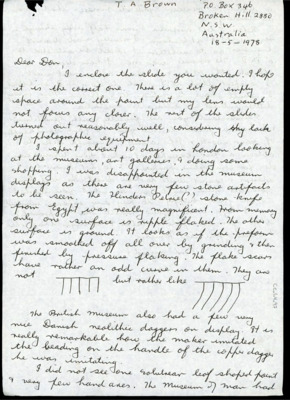 T A Brown
P.O. Box 346
Broken Hill 2880
N.S.W
Australia
18-5-1978
Dear Don,
I enclose the slide you wanted. I hope
it is the correct one. There is a lot of empty
space around the point but my lens would
not focus any closer. The rest of the slides
turned out reasonably well, considering my lack
of photographic equipment.
I spent about 10 days in London looking
at the museum, art galleries, & doing some
shopping. I was disappointed in the museum
displays as there are very few stone artifacts
to be seen. The Flinders Petrie(?) stone knife
from Egypt was really magnificent. From memory
only one surface is ripple flaked. The other
surface is ground. It looks as if the preform
was smoothed off all over by grinding & then
finished by pressure flaking. The flake scars
have rather an odd curve in them. They are
not but rather like
The British Museum also had a few very
nice Danish neolithic daggers on display. It is
really remarkable how the maker imitated
the beading on the handle of the copper dagger
he was imitating.
I did not see one solutrean leaf shaped point
& very few hand axes. The Museum of man had